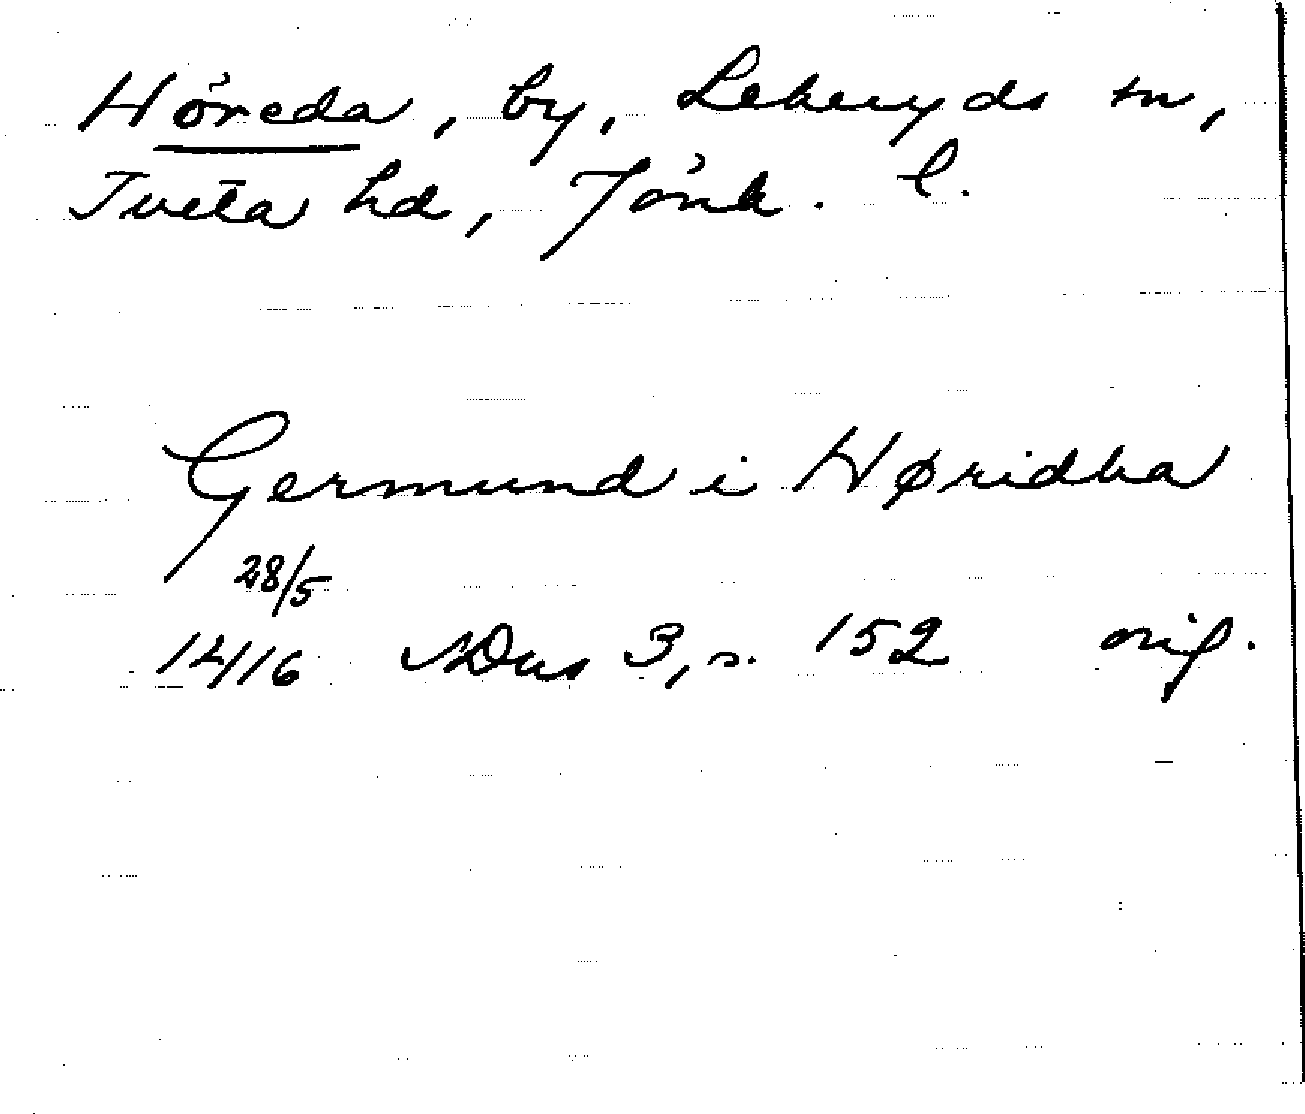 Höreda, by, Lekeryds sn,
Tveta hd, Jönk. l.
Germund i Høridha
28/5
1416 SDns 3, s. 152 orig.